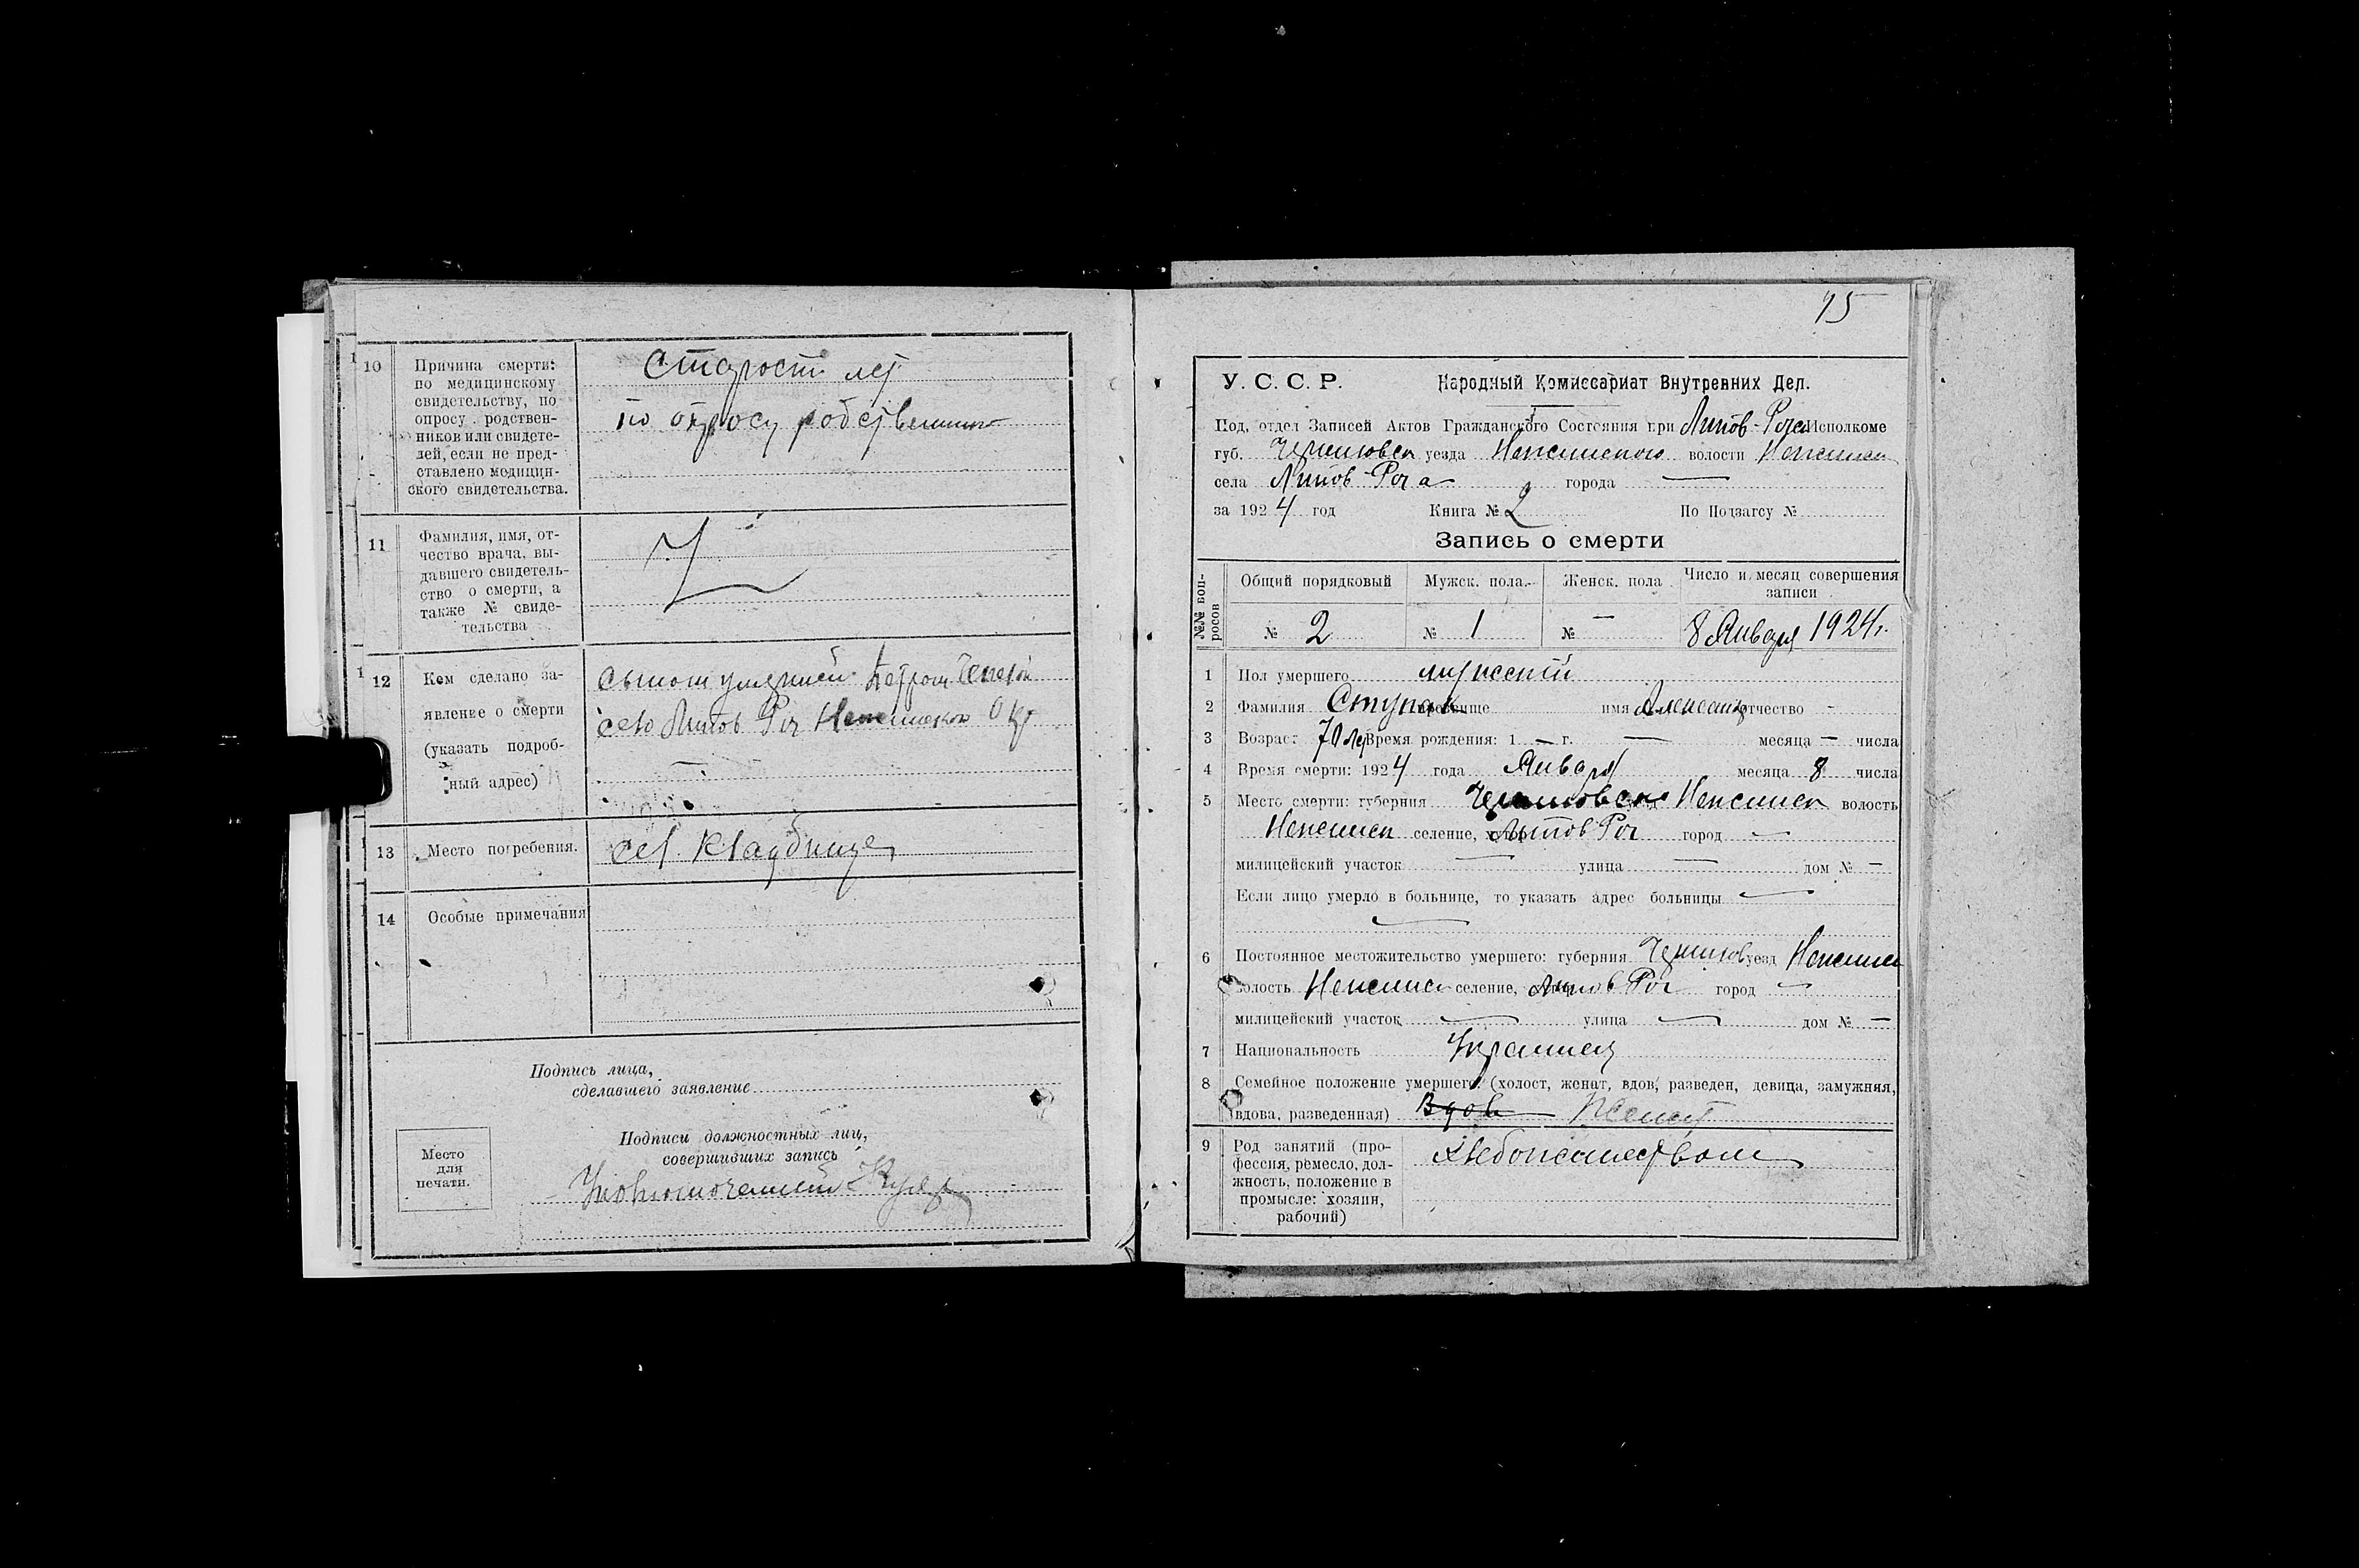 10 Причина смерти:
по медицинскому
свидетельству, по
опросу родствен-
ников или свидете-
лей, если не пред-
ставлено медицин-
ского свидетельства.
Старости лет
по опросу родственник
11 Фамилия, имя, от-
чество врача, вы-
давшего свидетель-
ство о смерти, а
также № свиде-
тельства
12 Кем сделано за-
явление о смерти
(указать подроб-
ный адрес)
сыном Петром
село Липов Рог Нежинского Окр
13 Место погребения.
сел. кладбище
14 Особые примечания
Подпись лица,
сделавшего заявление
Подписи должностных лиц,
совершивших запись
Место
для
печати.
Уполномоченный
75
У. С. С. Р. Народный Комиссариат Внутренних Дел.
Под, отдел Записей Актов Гражданского Состояния при Липов-Рога Исполкоме
губ. Черниговск уезда Неженского волости Неженск
села Липов-Рога города —
за 1924 год Книга № 2 По Подзагсу №
Запись о смерти
№№ воп-
росов
Общий порядковый Мужск. пола Женск. пола Число и месяц совершения
записи
№ 2 № 1 № — 8 Января 1924 г.
1 Пол умершего мужеский
2 Фамилия Ступак прозвище имя Александр отчество -
3 Возраст 70 лет Время рождения: 1 — г. — месяца — числа
4 Время смерти: 1924 года Января месяца 8 числа
5 Место смерти: губерния Черниговск Неженск волость
Неженск селение, Липов Рог город —
милицейский участок — улица — дом № —
Если лицо умерло в больнице, то указать адрес больницы —
—
6 Постоянное местожительство умершего: губерния Чернигов уезд Неженск
волость Неженск селение, Липов Рог город —
милицейский участок — улица — дом № —
7 Национальность Украинец
8 Семейное положение умершего: (холост, женат, вдов, разведен, девица, замужняя,
вдова, разведенная) Вдов Женат
9 Род занятий (про-
фессия, ремесло, дол-
жность, положение в
промысле: хозяин,
рабочий)
хлебопашеством